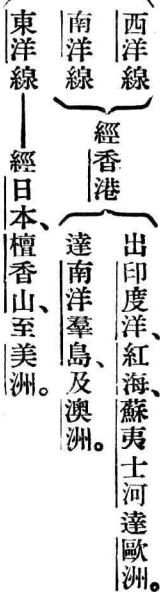 西洋線
南洋線
經香港
出印度洋、紅海、蘇夷士河達歐洲。
達南洋羣島、及澳洲。
東洋線——經日本、檀香山、至美洲。